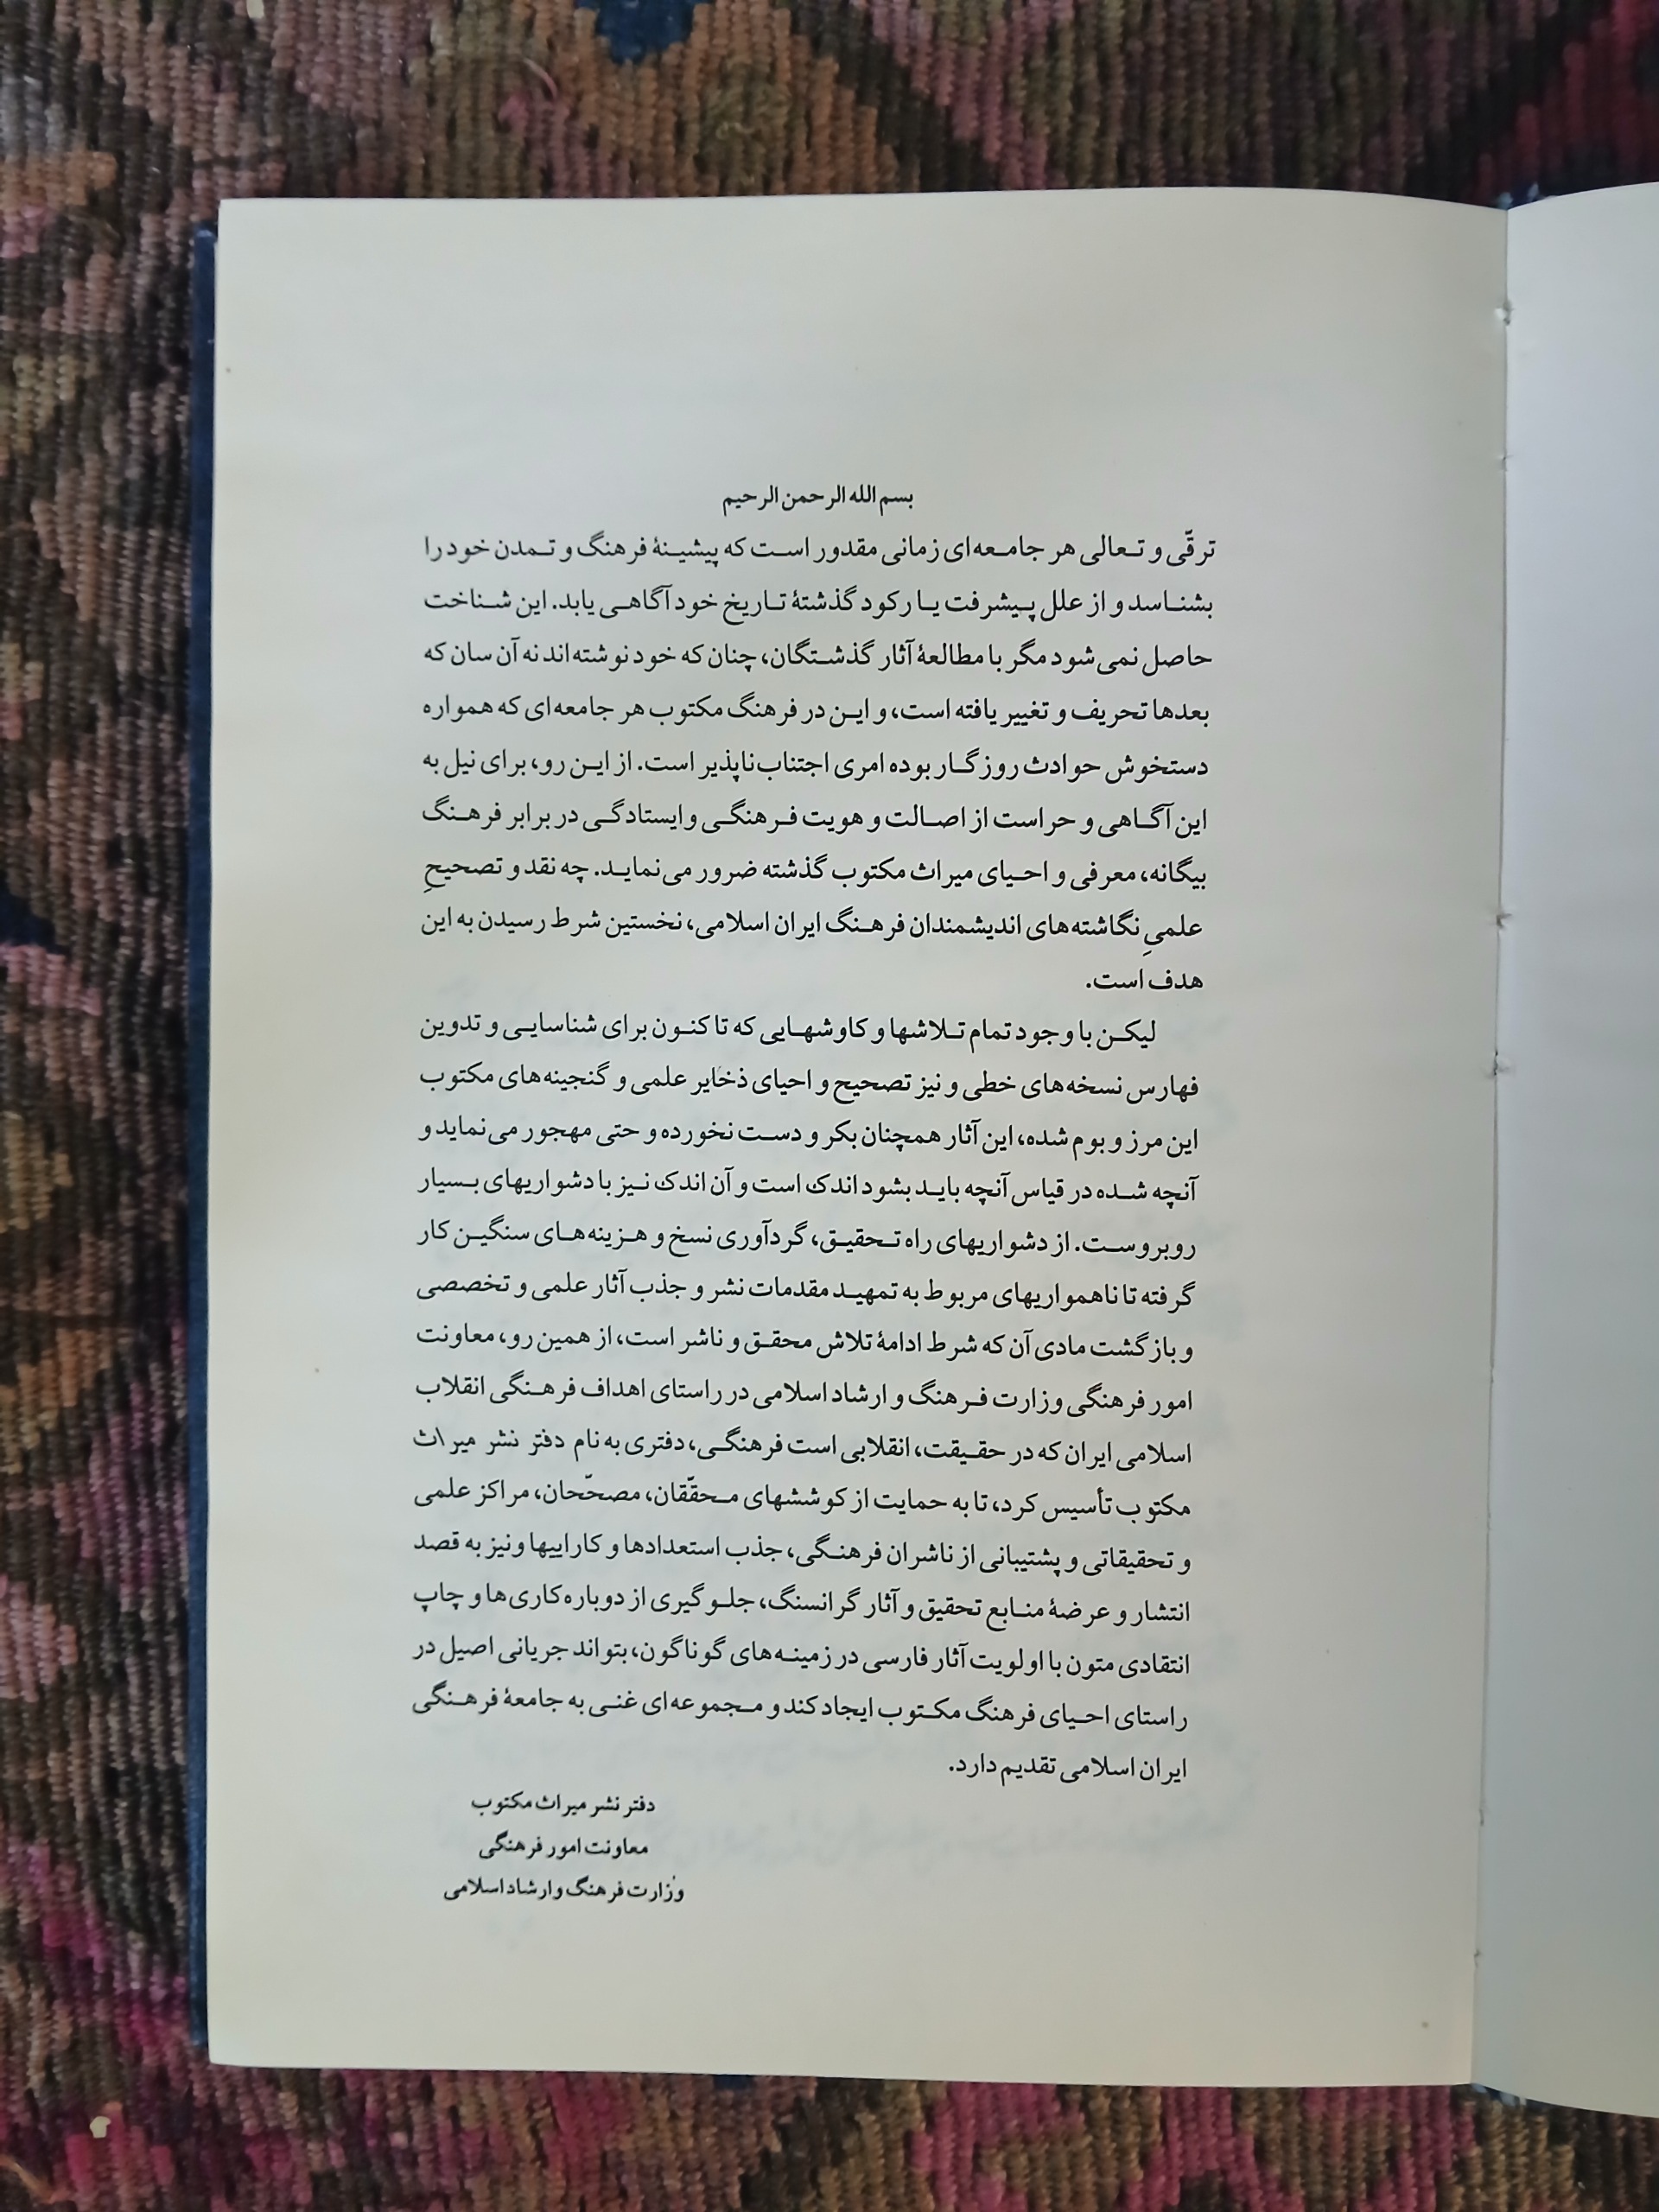 بسم الله الرحمن الرحیم
ترقّی و تعالی هر جامعه‌ای زمانی مقدور است که پیشینهٔ فرهنگ و تمدن خود را
بشناسد و از علل پیشرفت یا رکود گذشتهٔ تاریخ خود آگاهی یابد. این شناخت
حاصل نمی‌شود مگر با مطالعهٔ آثار گذشتگان، چنان که خود نوشته‌اند نه آن سان که
بعدها تحریف و تغییر یافته است، و این در فرهنگ مکتوب هر جامعه‌ای که همواره
دستخوش حوادث روزگار بوده امری اجتناب‌ناپذیر است. از این رو، برای نیل به
این آگاهی و حراست از اصالت و هویت فرهنگی وایستادگی در برابر فرهنگ
بیگانه، معرفی و احیای میراث مکتوب گذشته ضرور می‌نماید. چه نقد و تصحیحِ
علمیِ نگاشته‌های اندیشمندان فرهنگ ایران اسلامی، نخستین شرط رسیدن به این
هدف است.
لیکن با وجود تمام تلاشها و کاوشهایی که تاکنون برای شناسایی و تدوین
فهارس نسخه‌های خطی و نیز تصحیح و احیای ذخایر علمی و گنجینه‌های مکتوب
این مرز و بوم شده، این آثار همچنان بکر و دست نخورده و حتی مهجور می‌نماید و
آنچه شده در قیاس آنچه باید بشود اندک است و آن اندک نیز با دشواریهای بسیار
روبروست. از دشواریهای راه تحقیق، گردآوری نسخ و هزینه‌های سنگین کار
گرفته تا ناهمواریهای مربوط به تمهید مقدمات نشر و جذب آثار علمی و تخصصی
و بازگشت مادی آن که شرط ادامهٔ تلاش محقق و ناشر است، از همین رو، معاونت
امور فرهنگی وزارت فرهنگ و ارشاد اسلامی در راستای اهداف فرهنگی انقلاب
اسلامی ایران که در حقیقت، انقلابی است فرهنگی، دفتری به نام دفتر نشر میراث
مکتوب تأسیس کرد، تا به حمایت از کوششهای محقّقان، مصحّحان، مراکز علمی
و تحقیقاتی و پشتیبانی از ناشران فرهنگی، جذب استعدادها و کاراییها ونیز به قصد
انتشار و عرضهٔ منابع تحقیق و آثار گرانسنگ، جلوگیری از دوباره‌کاری‌ها و چاپ
انتقادی متون با اولویت آثار فارسی در زمینه‌های گوناگون، بتواند جریانی اصیل در
راستای احیای فرهنگ مکتوب ایجاد کند و مجموعه‌ای غنی به جامعهٔ فرهنگی
ایران اسلامی تقدیم دارد.
دفتر نشر میراث مکتوب
معاونت امور فرهنگی
وزارت فرهنگ و ارشاد اسلامی